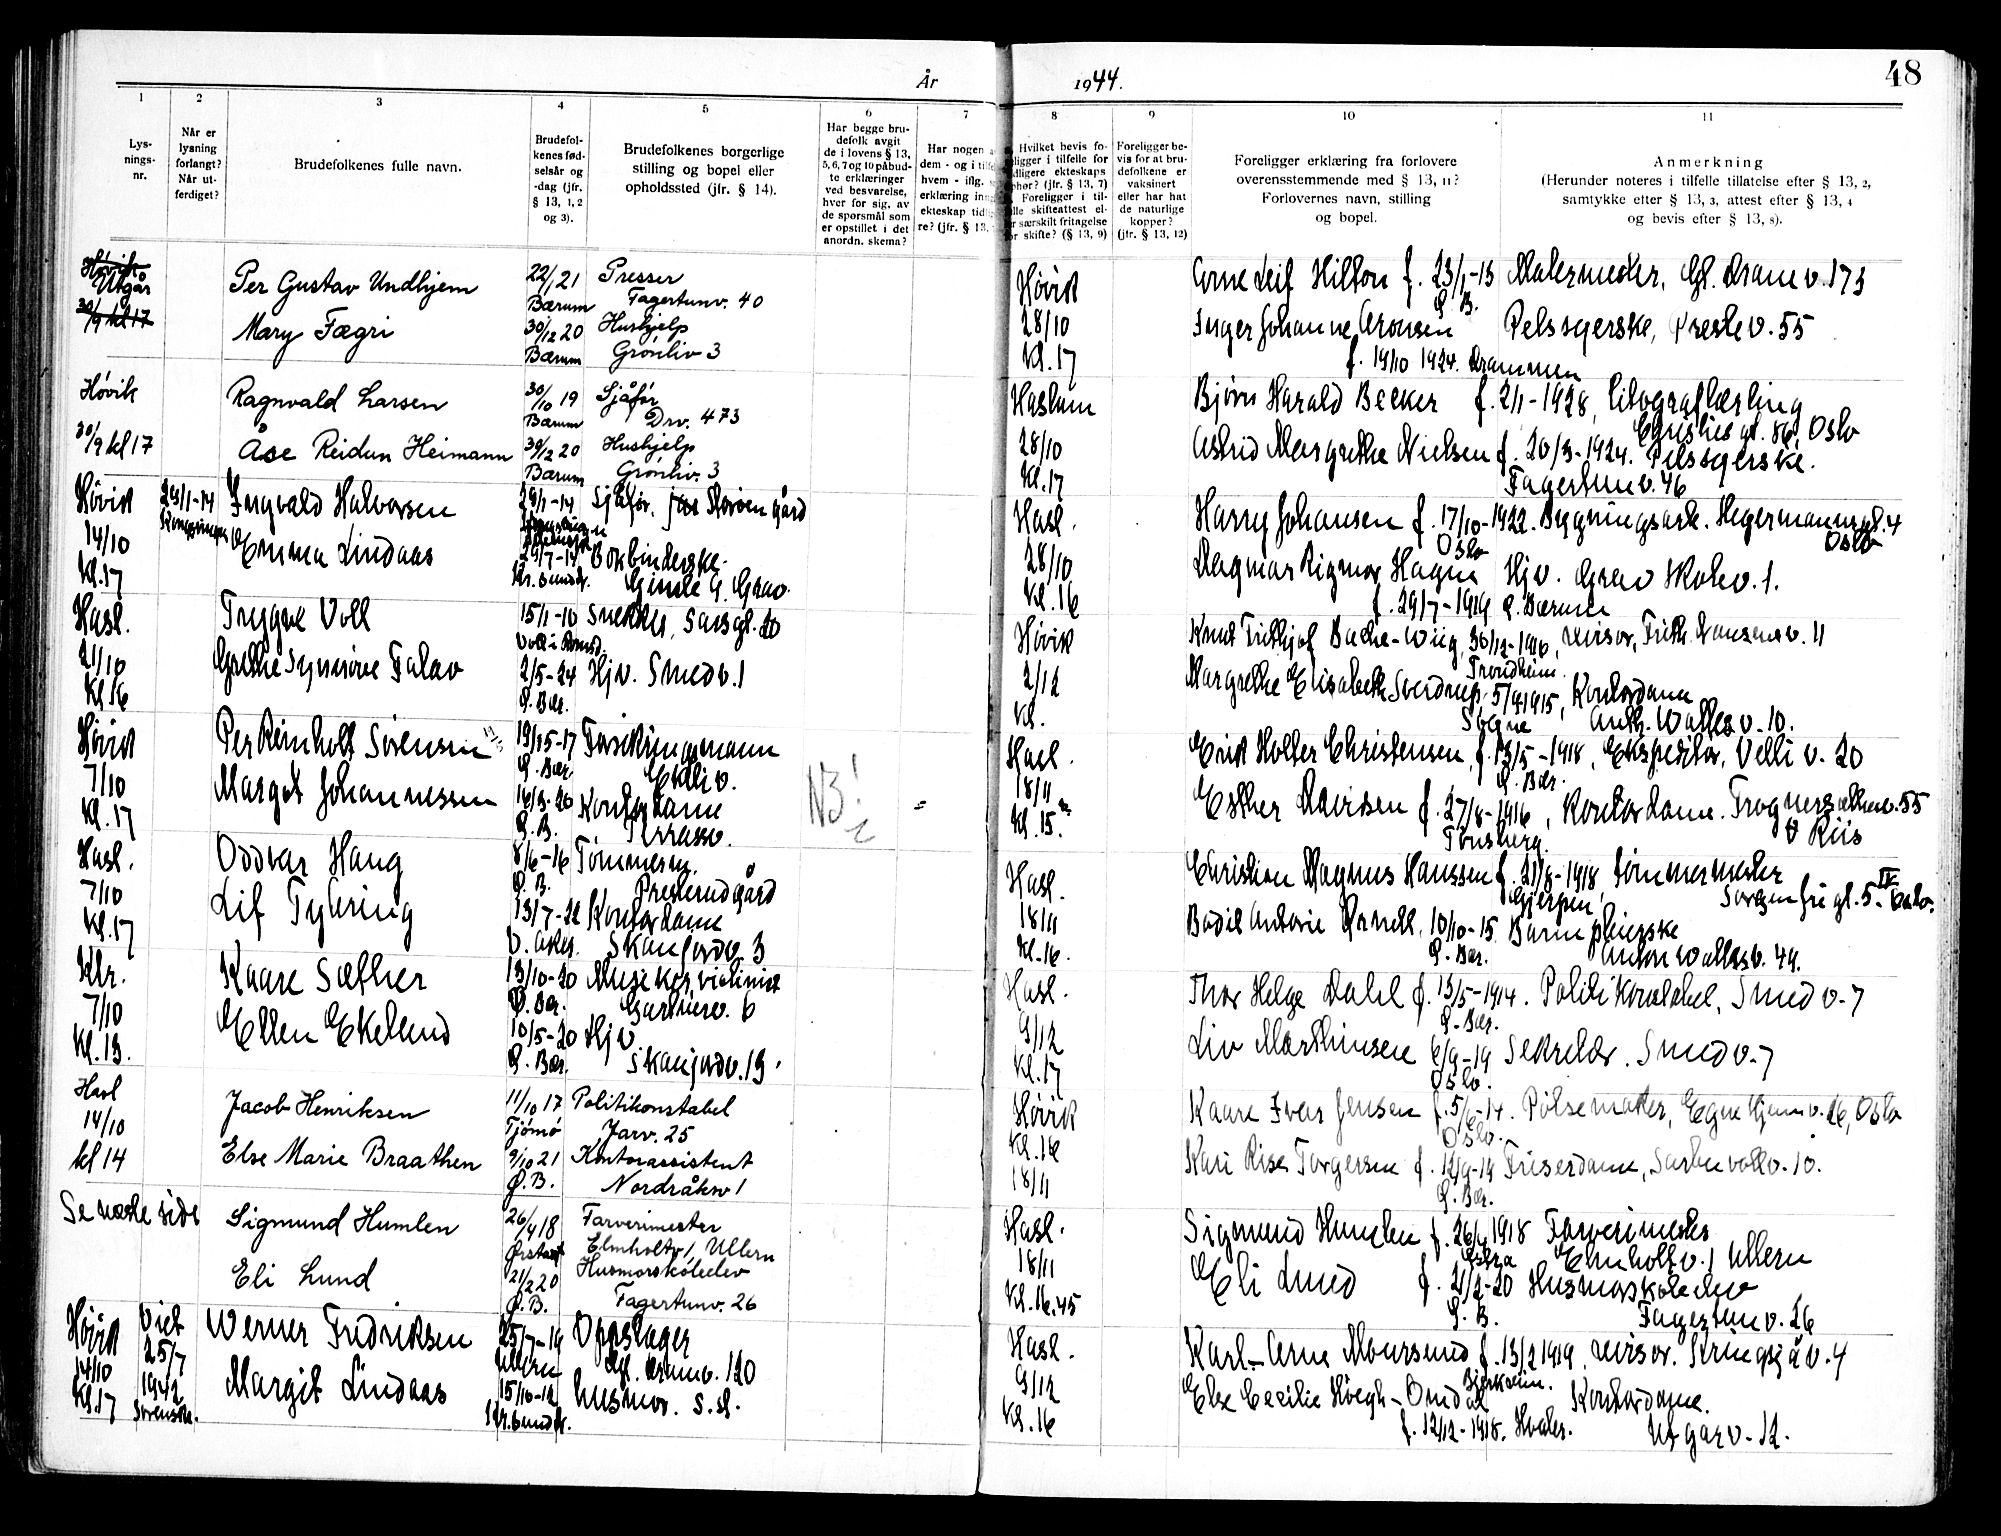 År 1944.
48
1 2 3 4 5 6 7 8 9 10 11
Lys-
nings-
nr.
Når er
lysning
forlangt?
Når ut-
ferdiget?
Brudefolkenes fulle navn.
Brudefol-
kenes fød-
selsår og
-dag (jfr.
§ 13, 1, 2
og 3).
Brudefolkenes borgerlige
stilling og bopel eller
opholdssted (jfr. § 14).
Har begge bru-
defolk avgit
de i lovens § 13,
5, 6, 7 og 10 påbud-
te erklæringer
ved besvarelse,
hver for sig, av
de spørsmål som
er opstillet i det
anordn. skema?
Har nogen a
dem - og i tilf
hvem - iflg.
erklæring inn
ekteskap tidl
re? (jfr. § 13,
Hvilket bevis fo-
ligger i tilfelle for
idligere ekteskaps
ophør? (jfr. § 13, 7)
Foreligger i til-
felle skifteattest el-
ler særskilt fritagelse
for skifte? (§ 13, 9)
Foreligger be-
vis for at bru-
defolkene er
vaksinert
eller har hat
de naturlige
kopper?
(jfr. § 13, 12)
Foreligger erklæring fra forlovere
overensstemmende med § 13, 11?
Forlovernes navn, stilling
og bopel.
Anmerkning
(Herunder noteres i tilfelle tillatelse efter § 13, 2,
samtykke efter § 13, 3, attest efter § 13, 4
og bevis efter § 13, 8).
Høvik
Utgår
30/9 kl 17
Per Gustav Undhjem
22/1 21
Bærum
Presser
Fagertunv. 40
Mary Fægri
30/12 20
Bærum
Hushjelp
Grønliv 3
Høvik
30/9 kl 17
Ragnvald Larsen
30/10 19
Bærum
Sjåfør
Drv. 473
Åse Reidun Heimann
30/2 20
Bærum
Hushjelp
Grønliv. 3
Høvik
14/10
Kl. 17
29/1-14
Ingvald Halvorsen
29/1-14
Sjåfør. Storøen gård
Emma Lindaas
29/7-14
Kr.sundN.
Bokbinderske
Gimle G. Grav.
Hasl.
21/10
Kl 16
Trygve Voll
15/1-10
Snekker, Sarsgt. 20
Grethe Synnöve Falao
2/5-24
Ø. Bær.
Hjv. Smedv. 1
Høvik
7/10
Kl. 17
Per Reinholt Sörensen
19/5-17
Ø. Bær.
Forsikringsmann
Ekeliv.
Margot Johannessen
16/3-20
Ø. B.
Kontordame
Terrassev.
N3!
=
Hasl.
7/10
Kl. 17
Oddvar Haug
8/6-16
Ø. B.
Tømmerm.
Presterudgård
Lif Tybring
13/7-22
V. Aker.
Kontordame
Skanjordv. 3
Klr.
7/10
Kl. 13.
Kaare Sæther
13/10-20
Ø. Bær.
Musiker, violinist
Gartnerv. 6
Ellen Ekelund
10/5-20
Ø. Bær.
Hjv.
Skanjordv. 13
Hasl
14/10
kl 14
Jacob Henriksen
11/10 17
Tjømø
Politikonstabel
Jarv. 25
Else Marie Braathen
9/10 21
Ø. B.
Kontorassistent
Nordråksv 1
Se neste side
Sigmund Humlen
26/4 18
Ørsta
Farverimester
Elmholtv 1, Ullern
Eli Lund
21/2 20
Ø. B.
Husmorskoleelev
Fagertunv. 26
Høvik
14/10
Kl. 17
Viet
25/7
1942
Sorensk.
Werner Fredriksen
25/7-19
Ullern
Oppslager
Gl. Drammv. 120
Margit Lindaas
15/10-12
Kr.sundN.
husmor. s.st.
Høvik
28/10
Kl. 17
Arne Leif Hilton f. 23/1-13
Ø. B.
Malermester, Gl. Dramv. 173
Inger Johanne Aronsen
f. 19/10 1924. Drammen
Pelssyerske, Prestev. 55
Haslum
28/10
Kl. 17
Bjørn Harald Becker f. 2/1-1928, Litograflærling
Christies gt. 86, Oslo
Astrid Margrethe Nielsen f. 20/3-1924. Pelssyerske.
Fagertunv. 46
Hasl.
28/10
Kl. 16
Harry Johansen f. 17/10-1922. Bygningsark. Hegermannsgt. 4
Oslo
Oslo
Dagmar Rigmor Hagne
f. 29/7-1919 Ø. Bærum
Hjv. Grav Skolev. 1.
Høvik
2/12
Kl.
Knut Fritthjof Bache-Wiig, 30/12-1916, revisor, Frith. Nansensv. 11
Trondheim.
Margrethe Elisabeth Sverdrup, 5/9 1915, Kontordame
Sogne
Anth. Wallesv. 10.
Hasl.
18/11
Kl. 15.
Erik Holter Christensen, f. 13/5-1918, Ekspeditør, Velliv. 20
Ø. Bær.
Esther Davidsen f. 27/8-1916, Kontordame. Trognersætherv. 55
Tønsberg.
v Riis
Hasl.
18/11
Kl. 16.
Christian Magnus Hanssen f. 21/8-1918, Tømmermester
Gjerpen,
Sorgenfrigt. 5. IV Oslo.
Bodil Antonie Arnell, 10/10-15 Barnepleierske
Ø. Bær.
Anton Wallesv. 44.
Hasl.
9/12
Kl. 17
Thor Helge Dahl f. 13/5-1914. Politikonstabel, Smedv. 7
Ø. Bær.
Liv Marthinsen 6/9-19 Sekretær. Smedv. 7
Oslo.
Høvik
Kl. 16
18/11
Kaare Ivar Jensen f. 5/6-14. Pølsemaker, Egne Hjemv. 26, Oslo
Oslo.
Kari Riser Torgersen f. 12/9-19 Friserdame, Sarbuvollv. 10.
Ø. Bær.
Hasl.
18/11
Kl. 16,45
Sigmund Humlen f. 26/4 1918 Farverimester
Ørsta
Elmholtv. 1 Ullern
Eli Lund f. 21/2-20 Husmorskoleelev
Ø. B.
Fagertunv. 26
Hasl.
9/12
Kl. 16
Karl-Arne Moursund f. 13/2 1919, revisor. Kringsjåv. 4
Bjerkreim.
Else Cecilie Høegh-Omdal
Kontordame.
f. 12/12-1918. Hvaler.
Utgarv. 12.